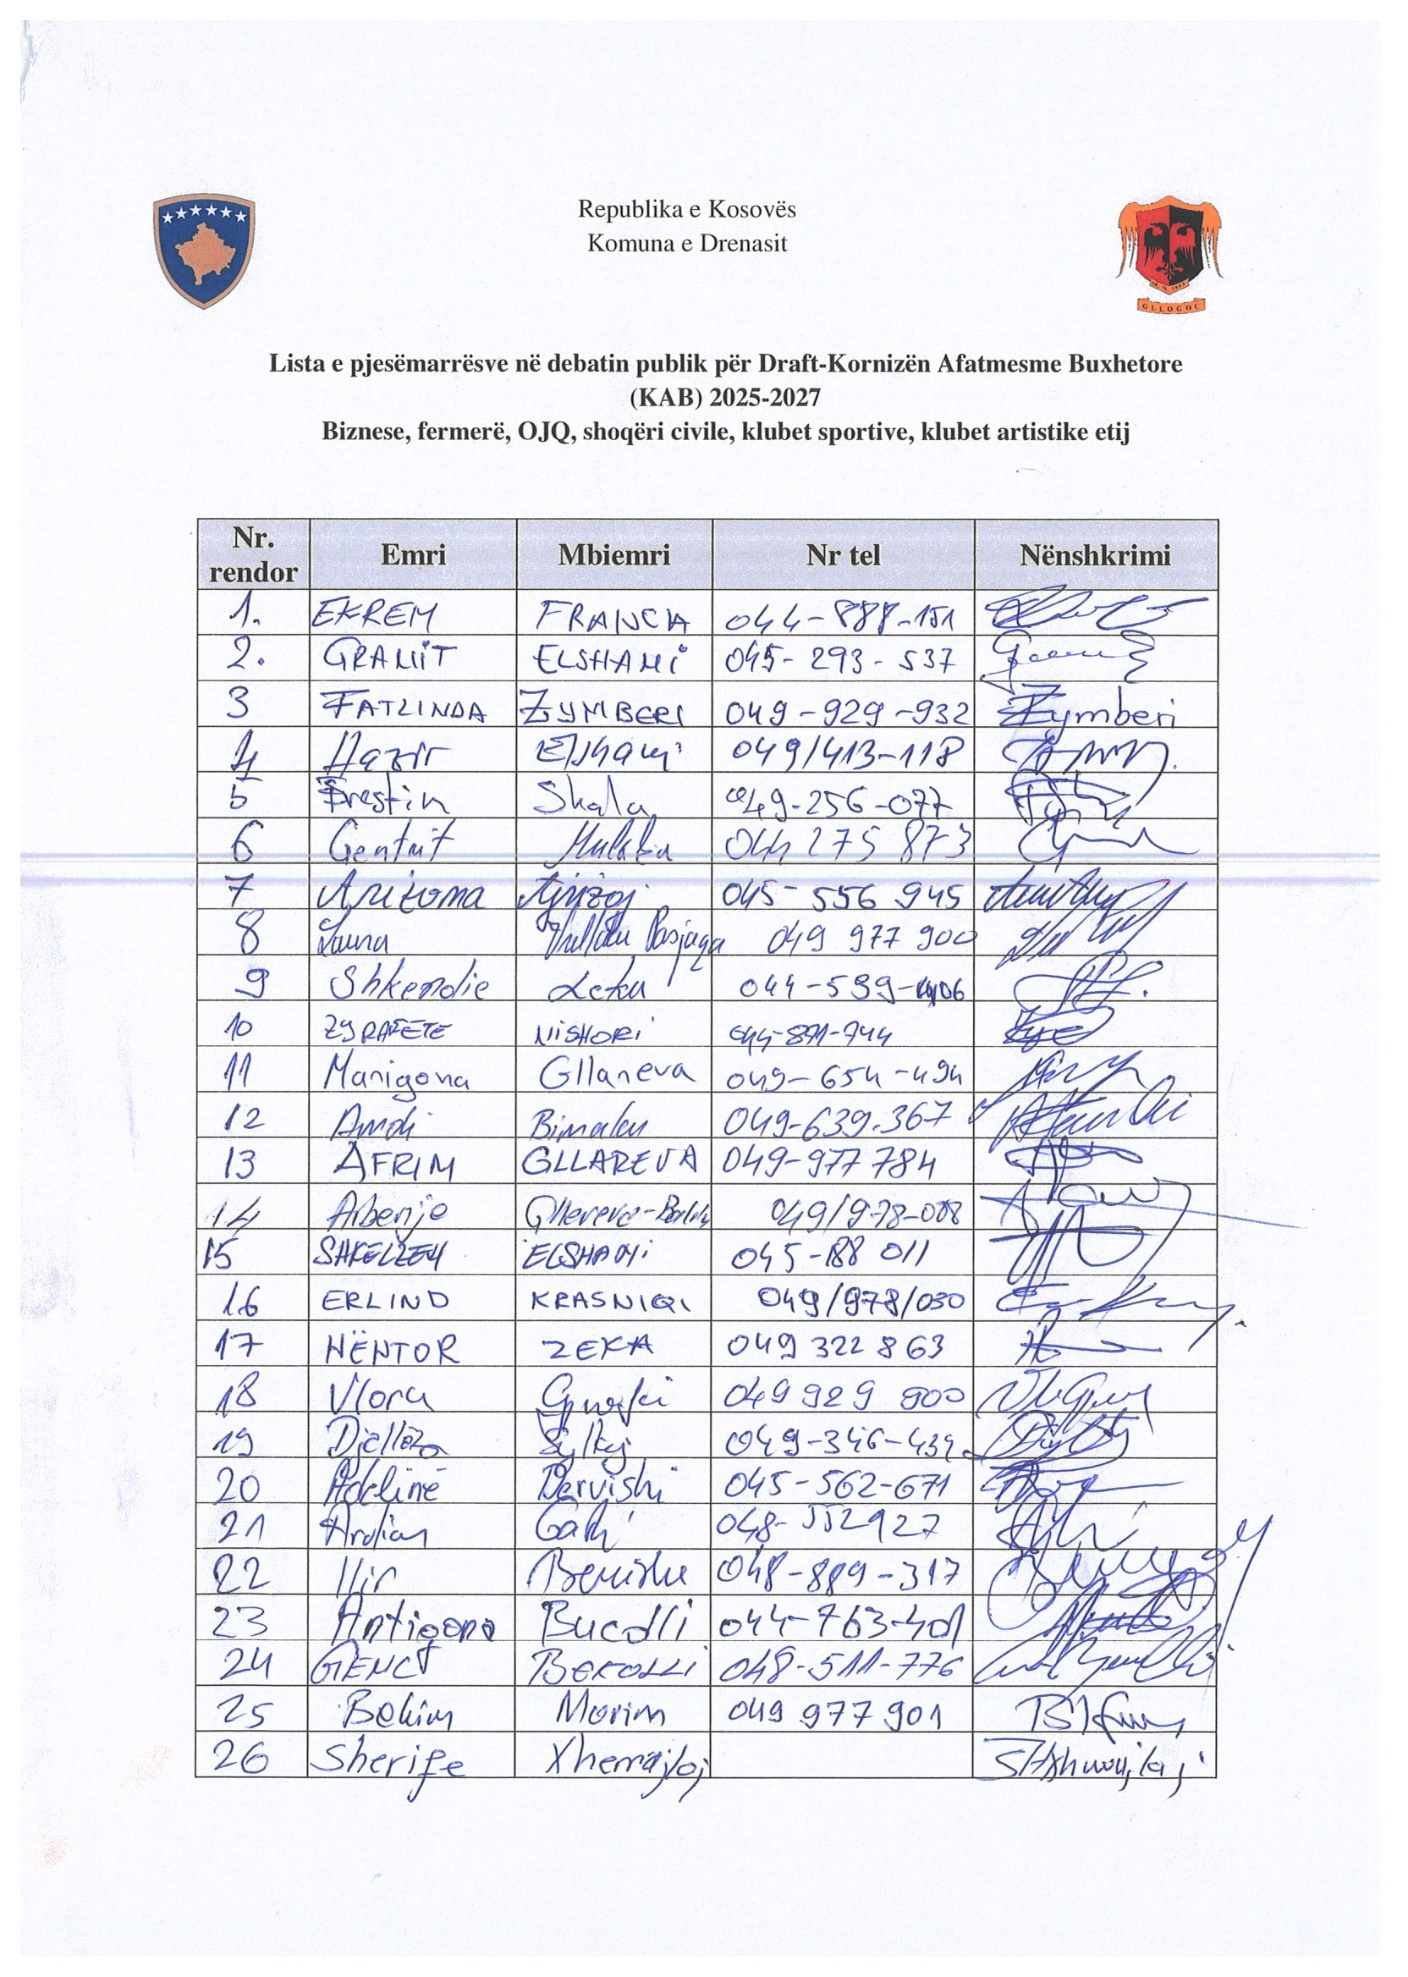 Republika e Kosovës
Komuna e Drenasit
GLLOGOC
Lista e pjesëmarrësve në debatin publik për Draft-Kornizën Afatmesme Buxhetore
(KAB) 2025-2027
Biznese, fermerë, OJQ, shoqëri civile, klubet sportive, klubet artistike etij
Nr. rendor Emri Mbiemri Nr tel Nënshkrimi
1. EKREM FRANCA 044-888-151
2. GRANIT ELSHANI 045-293-537
3 FATLINDA ZYMBERI 049-929-932 Zymberi
4 Hazir Elshani 049/413-118
5 Skala 049-256-077
6 Gentrit 044 275 873
7 Arizona 045-556 945
8 049 977 900
9 Shkendie Leku 044-539-
10 ZYRAFETE NISHORI 044-871-744
11 Marigona Gllareva 049-654-494
12 049-639-367
13 AFRIM GLLAREVA 049-977 784
14 Arberije 049/978-008
15 SHKELZEN ELSHANI 045-188 011
16 ERLIND KRASNIQI 049/978/030
17 NËNTOR ZEKA 049 322 863
18 Vlora 049 929 800
19 Djellëza Sylaj 049-346-434
20 Adelinë Dervishi 045-562-671
21 Ardian Gashi 048-552927
22 Ilir Berisha 048-889-317
23 Antigona Bucolli 044-763-401
24 GENC 048-511-776
25 Bekim Morina 049 977 901
26 Sherife Xhemajlaj